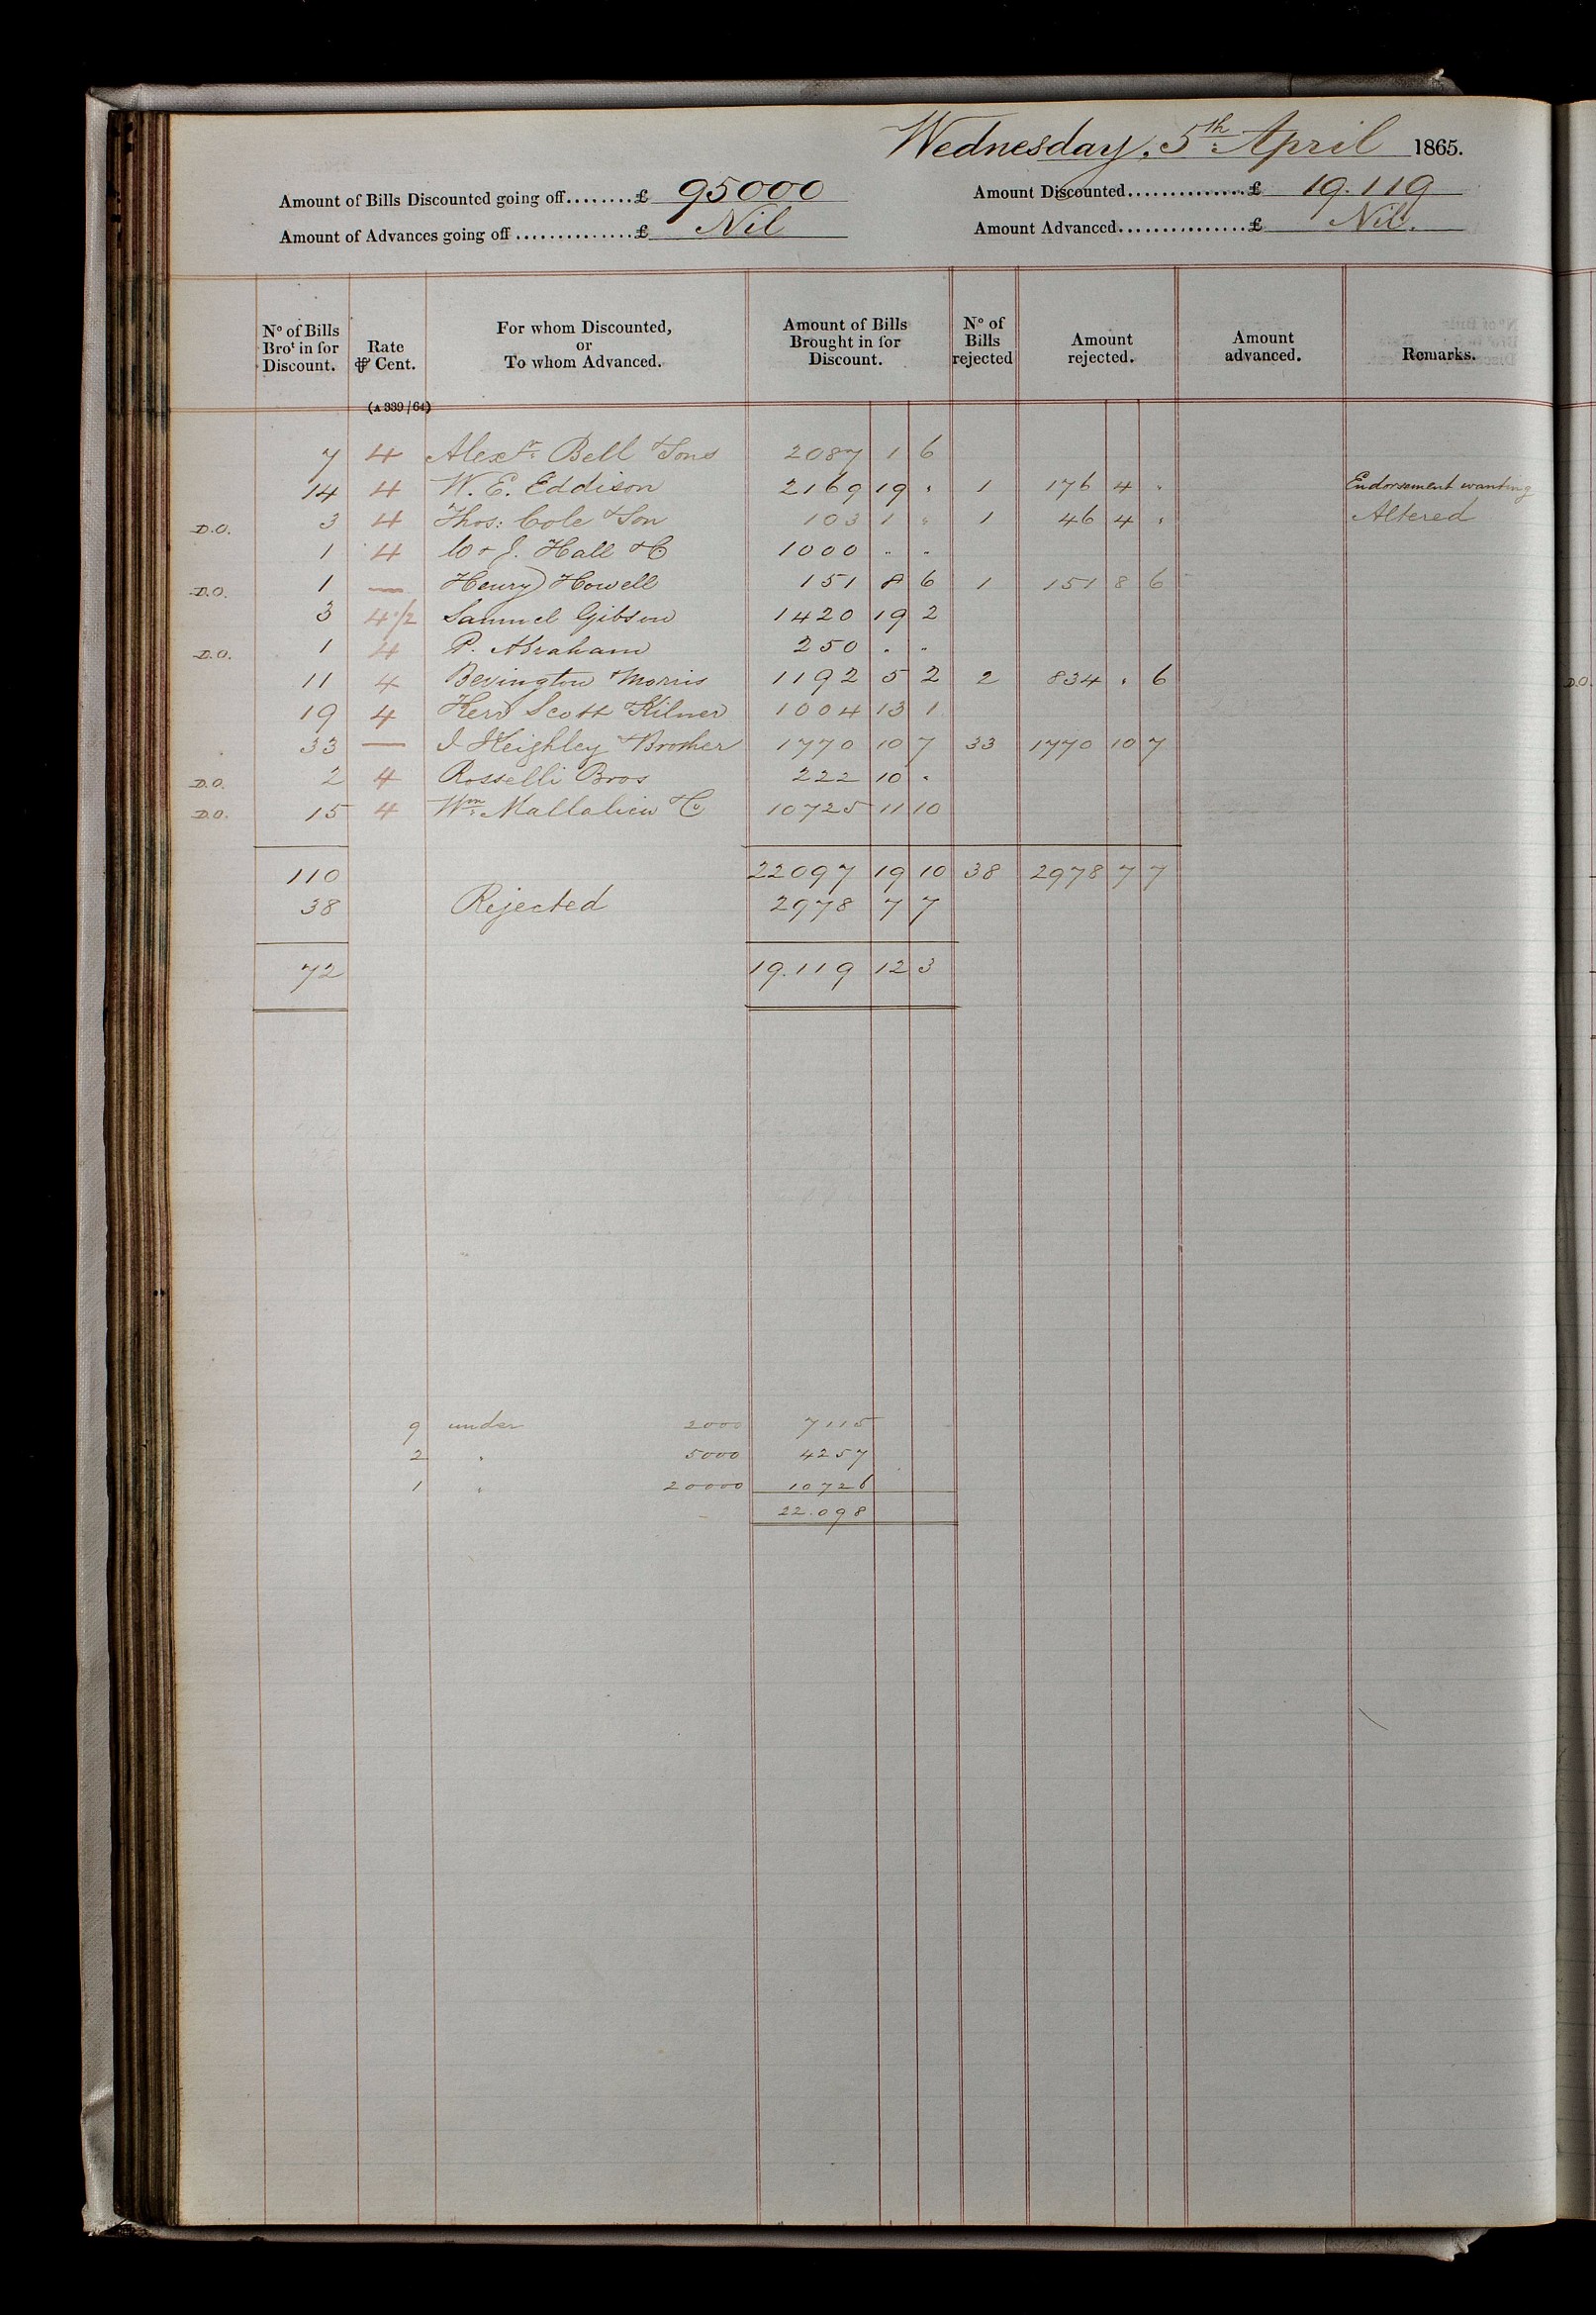 Wednesday, 5th April 1865.
Amount of Bills Discounted going off........£ 95000 Amount Discounted...............£ 19.119
Amount of Advances going off...............£ Nil Amount Advanced................£ Nil.
No of Bills Brot in for Discount. Rate ⅌ Cent. For whom Discounted, or To whom Advanced. Amount of Bills Brought in for Discount. No of Bills rejected Amount rejected. Amount advanced. Remarks.
(A 339/64)
7 4 Alexr Bell & Sons 2087 1 6
14 4 W. E. Eddison 2169 19 " 1 176 4 " Endorsement wanting
D.O. 3 4 Thos: Cole & Son 103 1 " 1 46 4 " Altered
1 4 W & J. Hall & Co 1000 " "
D.O. 1 — Henry Howell 151 8 6 1 151 8 6
3 4 1/2 Samuel Gibson 1420 19 2
D.O. 1 4 P. Abraham 250 " "
11 4 Bevington & Morris 1192 5 2 2 834 " 6
19 4 Kerr Scott & Kilner 1004 13 1
33 — J Keighley & Brother 1770 10 7 33 1770 10 7
D.O. 2 4 Rosselli Bros 222 10 "
D.O. 15 4 Wm Mallalieu & Co 10725 11 10
110 22097 19 10 38 2978 7 7
38 Rejected 2978 7 7
72 19.119 12 3
9 under 2000 7115
2 " 5000 4257
1 " 20000 10726
22.098
D.O.